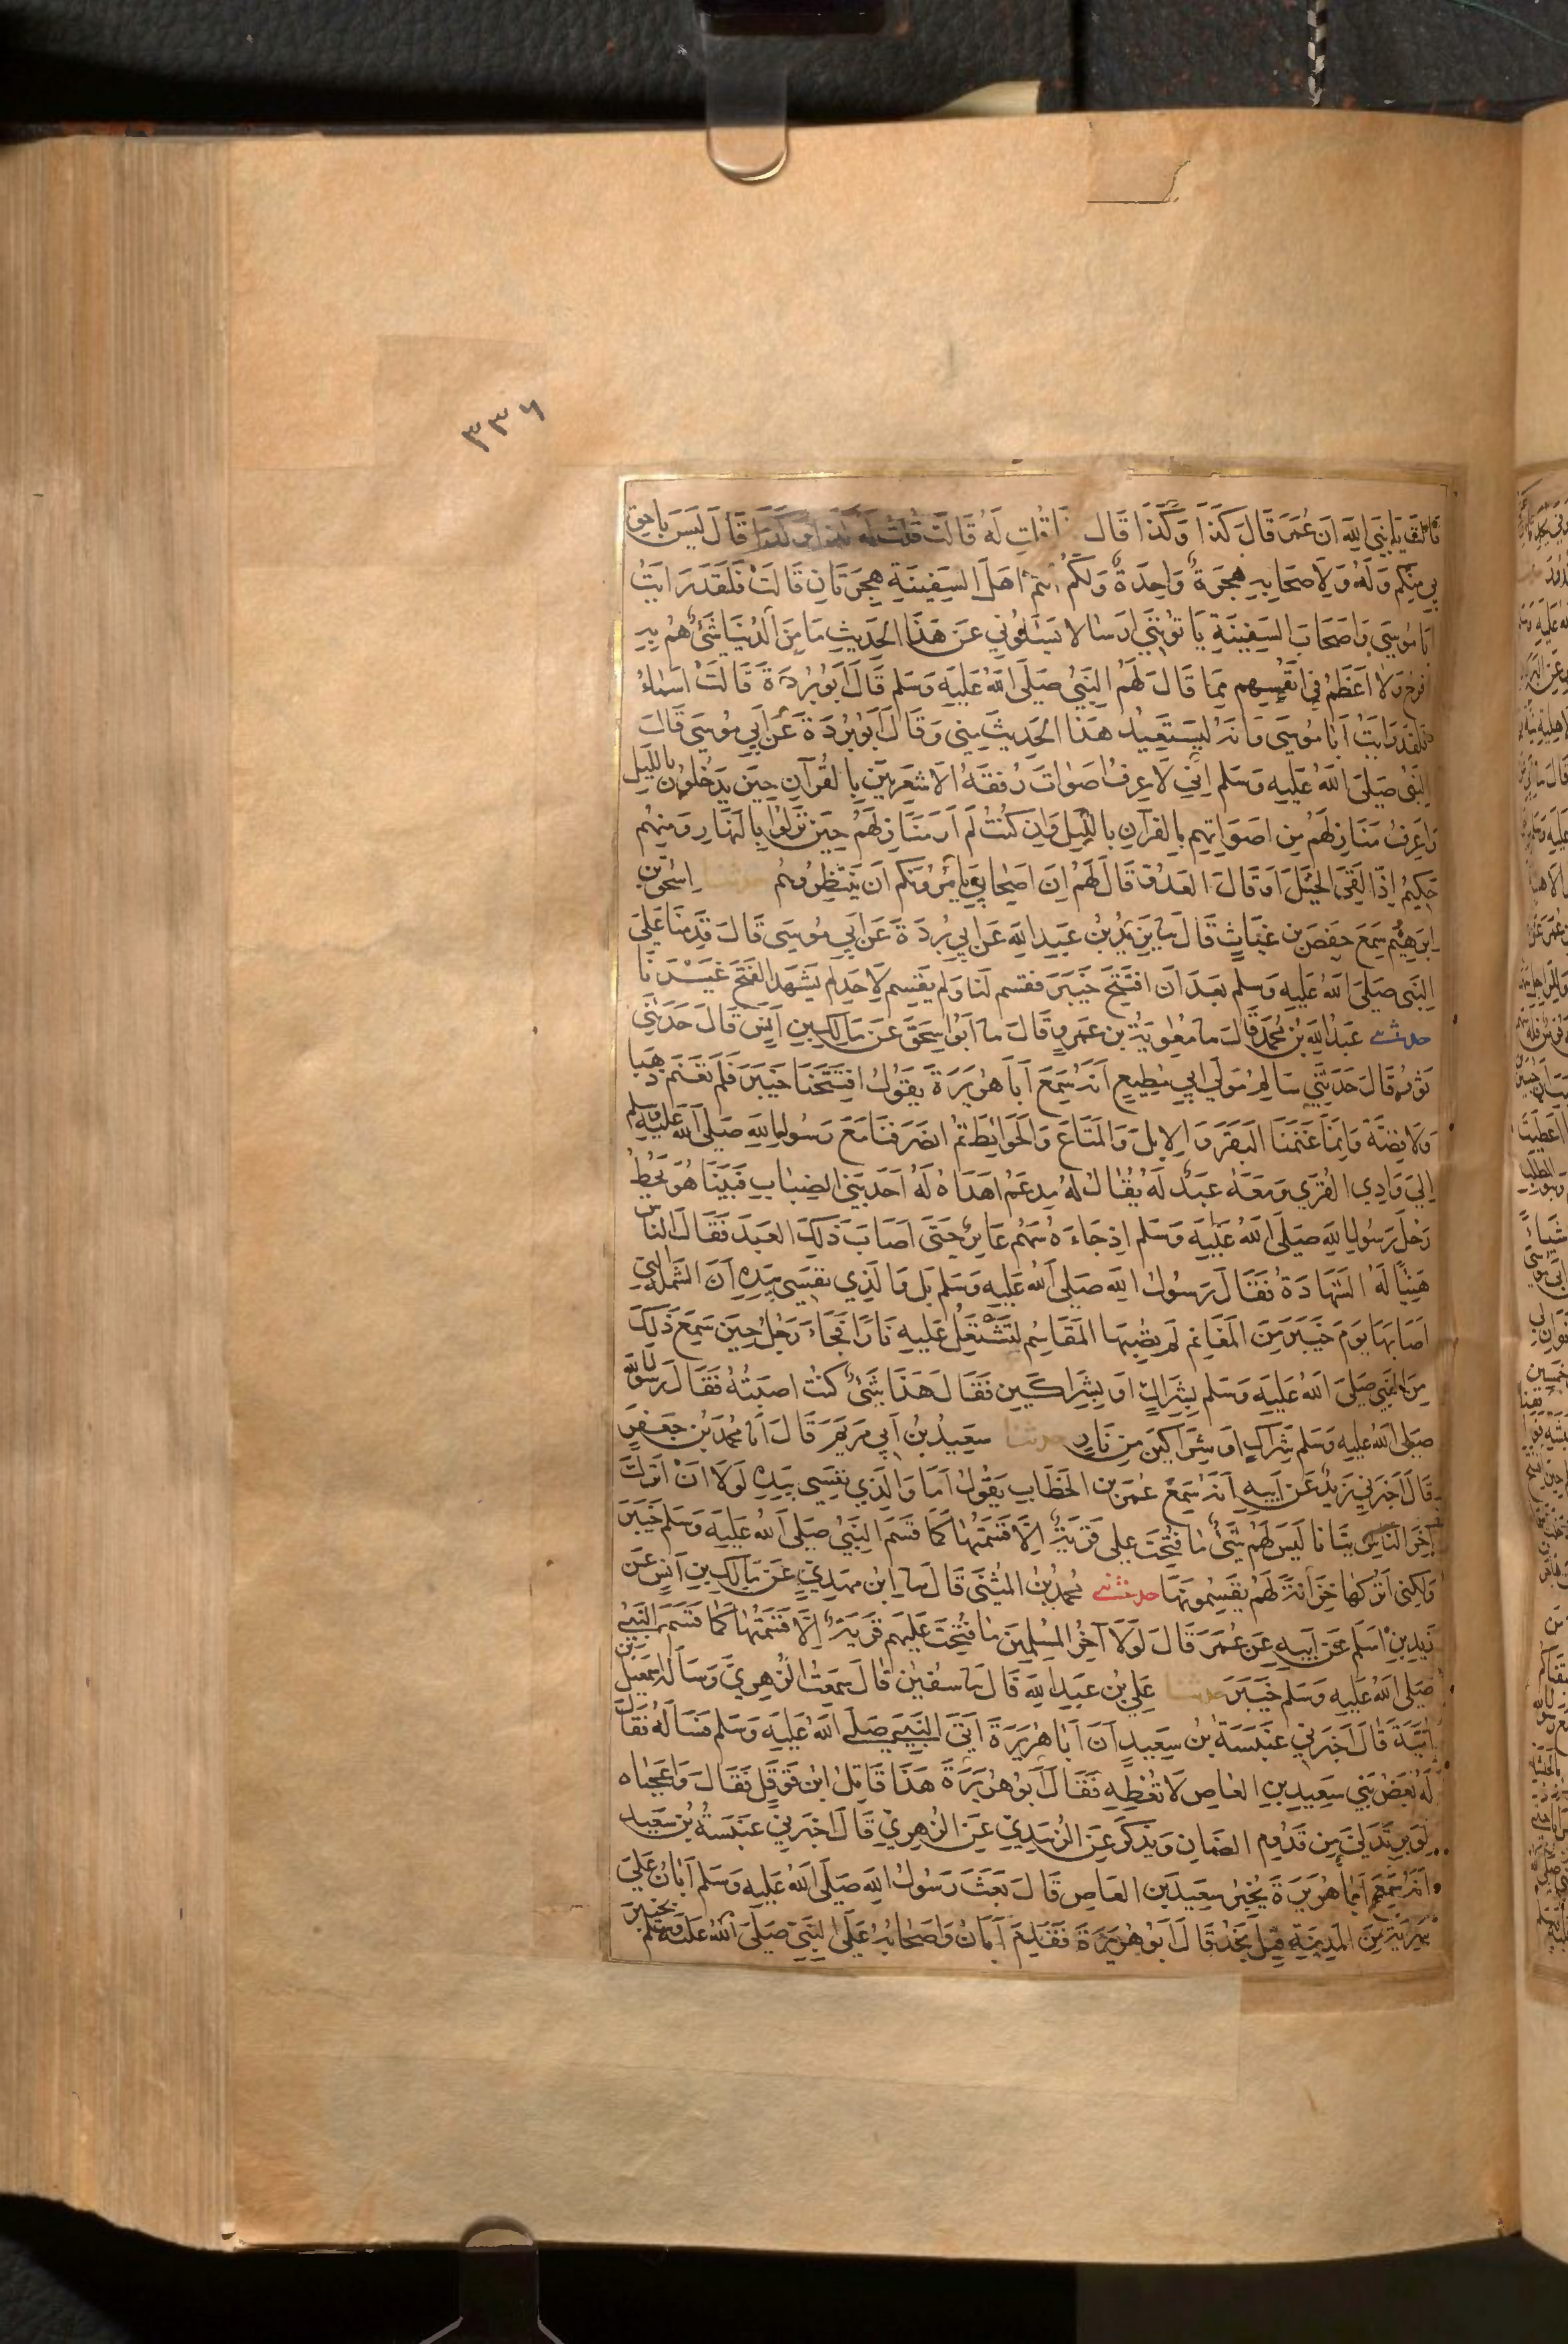 ٣٣٦
قالت يا نبي الله ان عمر قال كذا وكذا قال فما قلت له قالت قلت له كذا وكذا قال ليس باحق
بي منكم وله ولاصحابه هجرة واحدة ولكم انتم اهل السفينة هجرتان قالت فلقد رايت
ابا موسى واصحاب السفينة ياتونني ارسالا يسئلوني عن هذا الحديث ما من الدنيا شئ هم به
افرح ولا اعظم في انفسهم مما قال لهم النبي صلى الله عليه وسلم قال ابو بردة قالت اسماء
فلقد رايت ابا موسى وانه ليستعيد هذا الحديث مني وقال ابو بردة عن ابي موسى قال
النبي صلى الله عليه وسلم اني لاعرف اصوات رفقة الاشعريين بالقرآن حين يدخلون بالليل
واعرف منازلهم من اصواتهم بالقرآن بالليل وان كنت لم ار منازلهم حين نزلوا بالنهار ومنهم
حكيم اذا لقي الخيل او قال العدو قال لهم ان اصحابي يامرونكم ان تنتظروهم حدثنا اسحق بن
ابرهيم سمع حفص بن غياث قال ثنا بريد بن عبد الله عن ابي بردة عن ابي موسى قال قدمنا على
النبي صلى الله عليه وسلم بعد ان افتتح خيبر فقسم لنا ولم يقسم لاحد لم يشهد الفتح غيرنا
حدثني عبد الله بن محمد قال ثنا معوية بن عمرو قال ثنا ابو اسحق عن مالك بن انس قال حدثني
ثور قال حدثني سالم مولى ابي مطيع انه سمع ابا هريرة يقول افتتحنا خيبر فلم نغنم ذهبا
ولا فضة وانما غنمنا البقر والابل والمتاع والحوائط ثم انصرفنا مع رسول الله صلى الله عليه وسلم
الى وادي القرى ومعه عبد له يقال له مدعم اهداه له احد بني الضباب فبينا هو يحط
رحل رسول الله صلى الله عليه وسلم اذ جاءه سهم عائر حتى اصاب ذلك العبد فقال الناس
هنيا له الشهادة فقال رسول الله صلى الله عليه وسلم بل والذي نفسي بيده ان الشملة التي
اصابها يوم خيبر من المغانم لم تصبها المقاسم لتشتعل عليه نارا فجاء رجل حين سمع ذلك
من النبي صلى الله عليه وسلم بشراك او بشراكين فقال هذا شئ كنت اصبته فقال رسول الله
صلى الله عليه وسلم شراك او شراكين من نار حدثنا سعيد بن ابي مريم قال انا محمد بن جعفر
قال اخبرني زيد عن ابيه انه سمع عمر بن الخطاب يقول اما والذي نفسي بيده لولا ان اترك
آخر الناس بيانا ليس لهم شئ ما فتحت على قرية الا قسمتها كما قسم النبي صلى الله عليه وسلم خيبر
ولكني اتركها خزانة لهم يقسمونها حدثني محمد بن المثنى قال ثنا ابن مهدي عن مالك بن انس عن
زيد بن اسلم عن ابيه عن عمر قال لولا آخر المسلمين ما فتحت عليهم قرية الا قسمتها كما قسم النبي
صلى الله عليه وسلم خيبر حدثنا علي بن عبد الله قال ثنا سفين قال سمعت الزهري وساله اسمعيل بن
امية قال اخبرني عنبسة بن سعيد ان ابا هريرة اتى النبي صلى الله عليه وسلم فساله فقال
له بعض بني سعيد بن العاص لا تعطه فقال ابو هريرة هذا قاتل ابن قوقل فقال واعجباه
لوبر تدلى من قدوم الضان ويذكر عن الزبيدي عن الزهري قال اخبرني عنبسة بن سعيد
انه سمع ابا هريرة يخبر سعيد بن العاص قال بعث رسول الله صلى الله عليه وسلم ابان على
سرية من المدينة قبل نجد قال ابو هريرة فقدم ابان واصحابه على النبي صلى الله عليه وسلم بخيبر